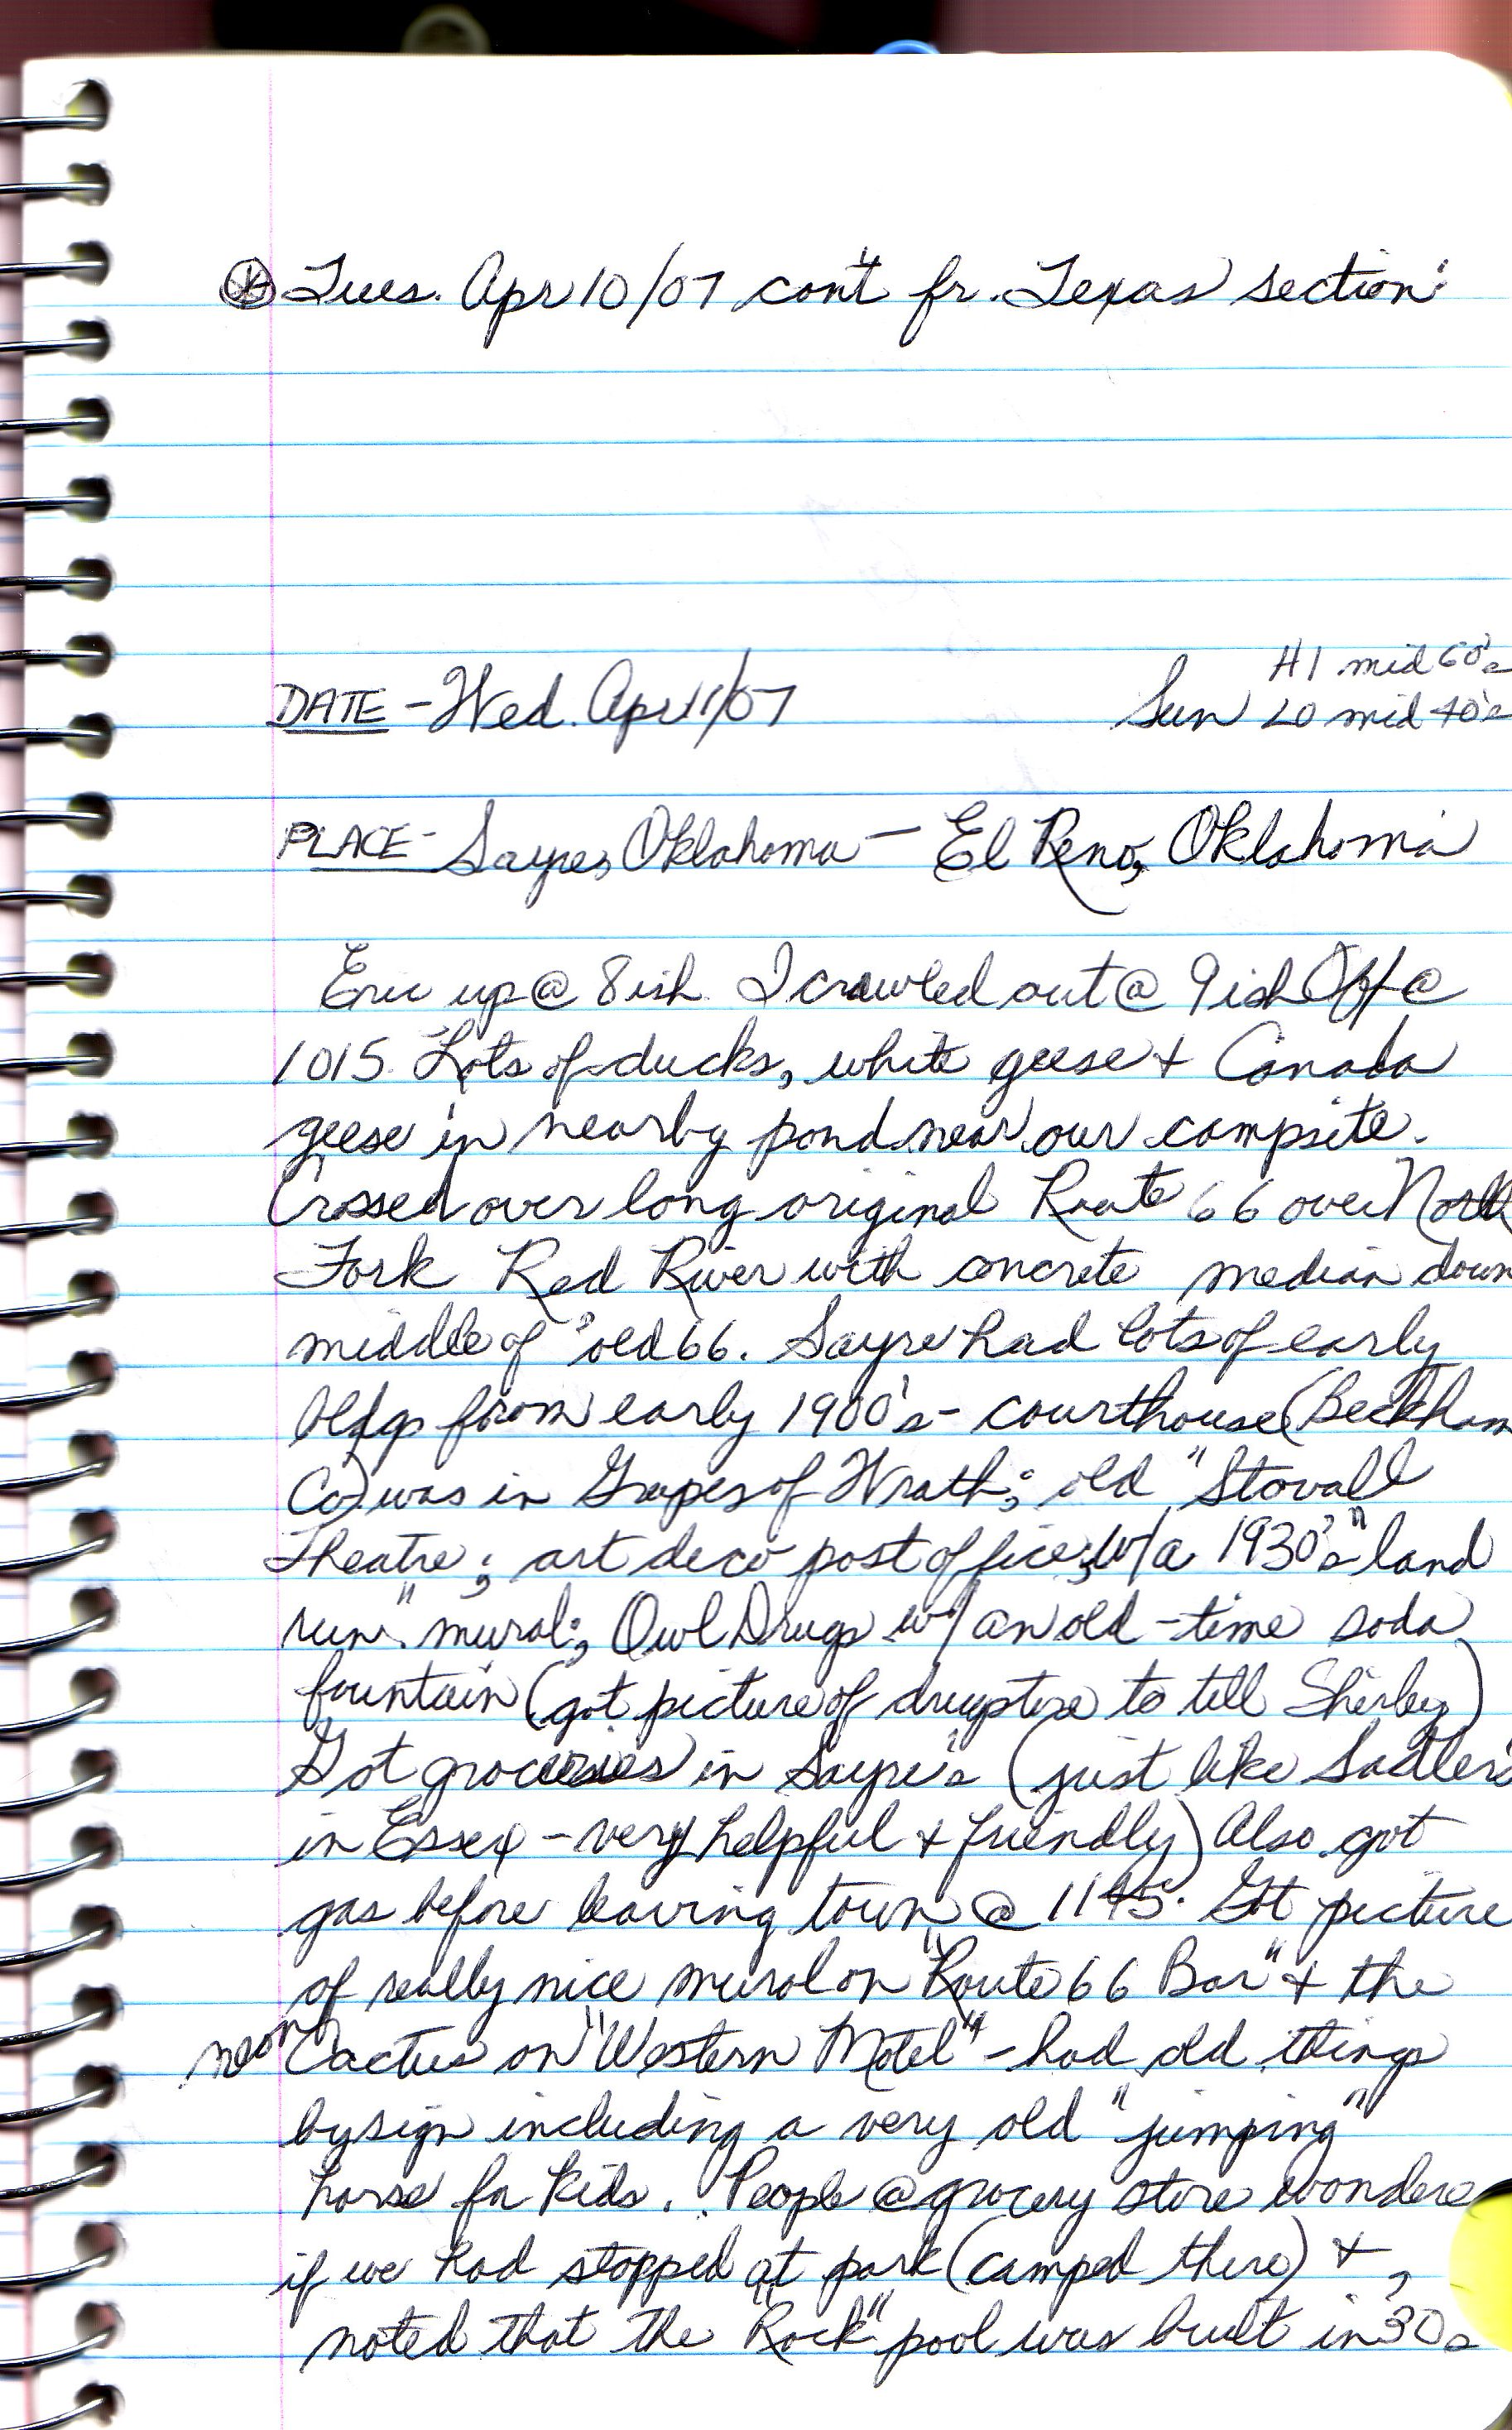 Tues. Apr 10/07 con't fr. Texas section:
HI mid 60's
DATE - Wed. Apr 11/07 Sun LO mid 40's
PLACE - Sayre, Oklahoma - El Reno, Oklahoma
Eric up @ 8ish I crawled out @ 9ish Off @
1015. Lots of ducks, white geese + Canada
geese in nearby pond near our campsite.
Crossed over long original Route 66 over North
Fork Red River with concrete median down
middle of "old 66. Sayre had lots of early
bldgs from early 1900's - courthouse (Beckham
Co) was in Grapes of Wrath; old "Stovall
Theatre; art deco post office; w/a 1930's "land
run" mural; Owl Drugs w/ an old-time soda
fountain (got picture of drugstore to tell Shirley)
Got groceries in Sayre's (just like Sadler's
in Essex - very helpful + friendly) Also got
gas before leaving town @ 1145. Got picture
of really nice mural on "Route 66 Bar" + the
neon Cactus on "Western Motel" - had old things
by sign including a very old "jumping"
horse for kids. People @ grocery store wondere
if we had stopped at park (camped there) +,
noted that the "Rock" pool was built in 30s